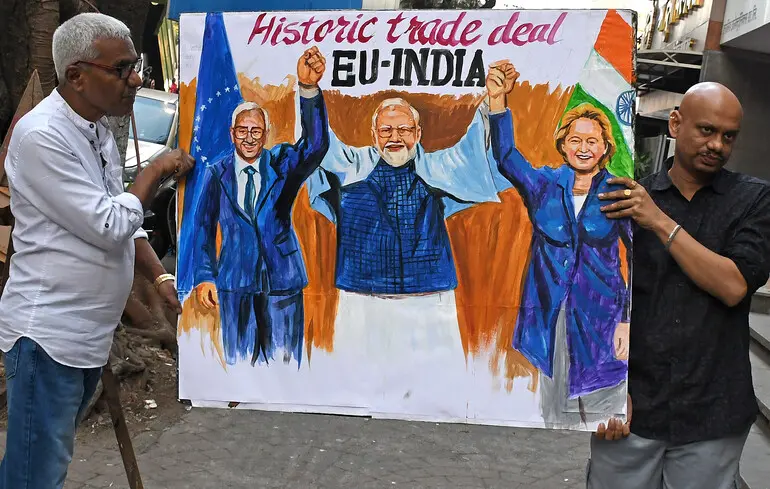 Historic trade deal
EU-INDIA